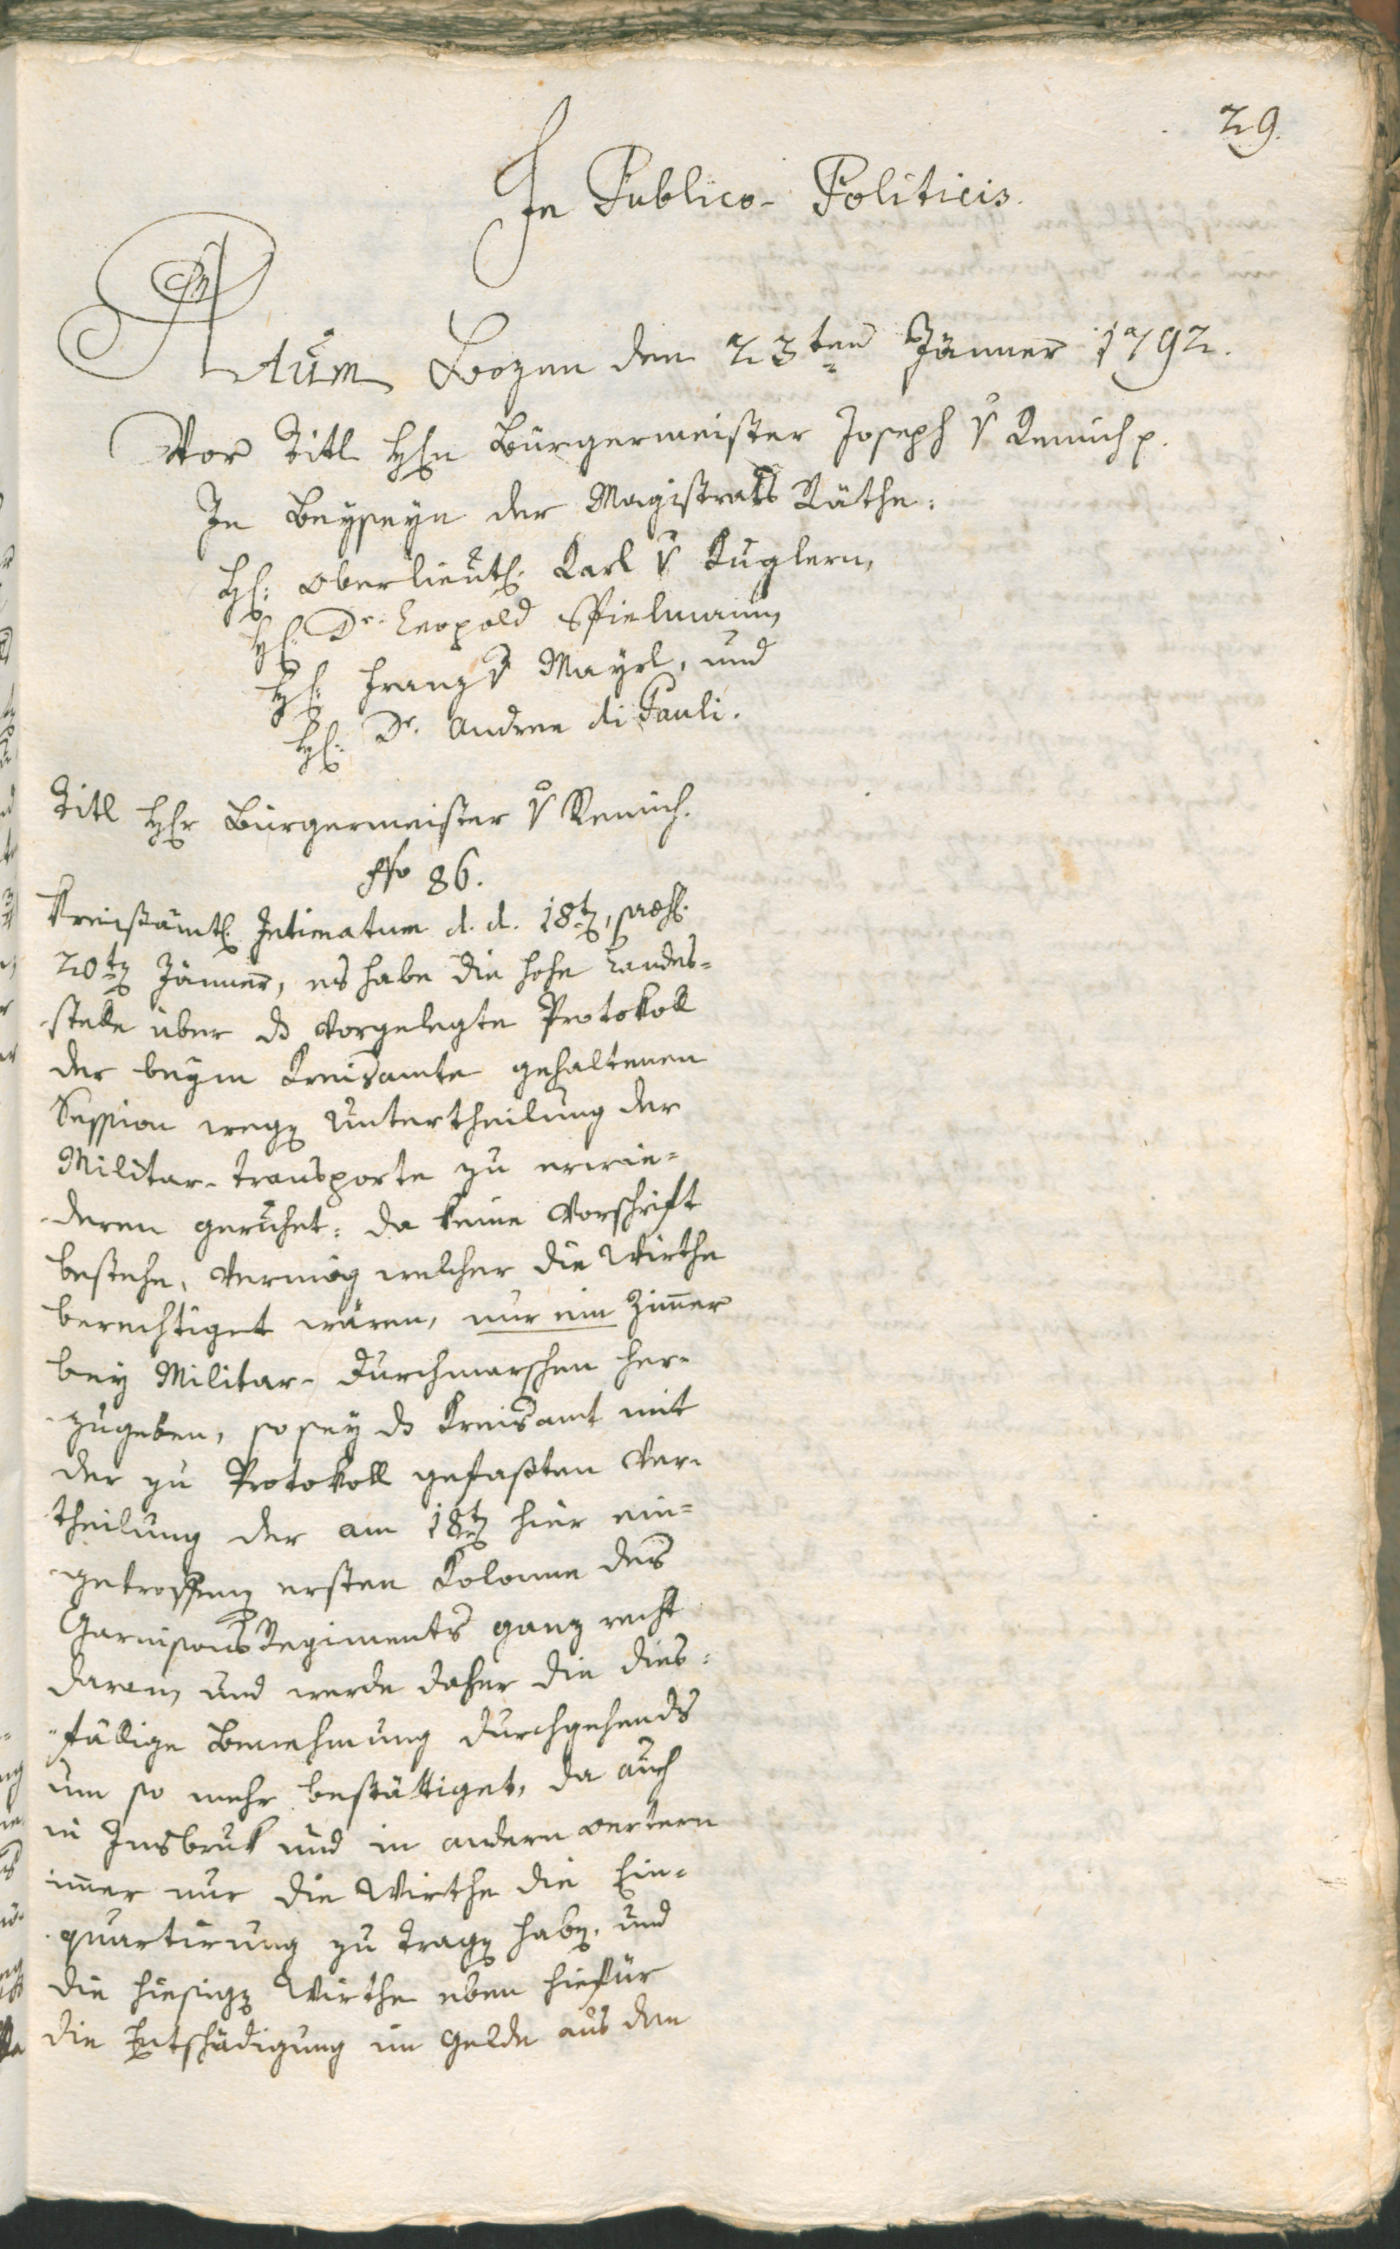 29.
In Publico-Politicis.
Actum Bozen den 23ten Jänner 1792.
Vor Titl Hℓn Bürgermeister Joseph v Remich p.
In Beyseyn der Magistrats Räthe:
Hℓ: Oberlieutℓ. Karl v Kuglern,
Hℓ. Dr. Leopold Spielmann,
Hℓ: Franz v Mayrl, und
Hℓ: Dr. Andree di Pauli.
Titl Hℓr Bürgermeister v Remich.
No 86.
Kreisämtℓ. Intimatum d. d. 18t, praes.
20t Jänner, es habe die hohe Landes=
stelle über ds vorgelegte Protokoll
der beym Kreisamte gehaltenen
Session weg Untertheilung der
Militar-Transporte zu erwie=
deren geruhet: da keine Vorschrift
bestehe, vermög welcher die Wirthe
berechtiget wären, nur ein Zimer
bey Militar-Durchmarschen her-
zugeben, so sey ds Kreisamt mit
der zu Protokoll gefaßten Ver-
theilung der am 18t hier ein=
getroffenen ersten Kolonne des
Garnisons Regiments ganz recht
daran, und werde daher die dies=
fällige Benehmung durchgehends
um so mehr bestättiget, da auch
in Insbruk und in andern Oertern
imer nur die Wirthe die Ein=
quartirung zu trag hab, und
die hiesig Wirthe eben hiefür
die Entschädigung im Gelde aus dem